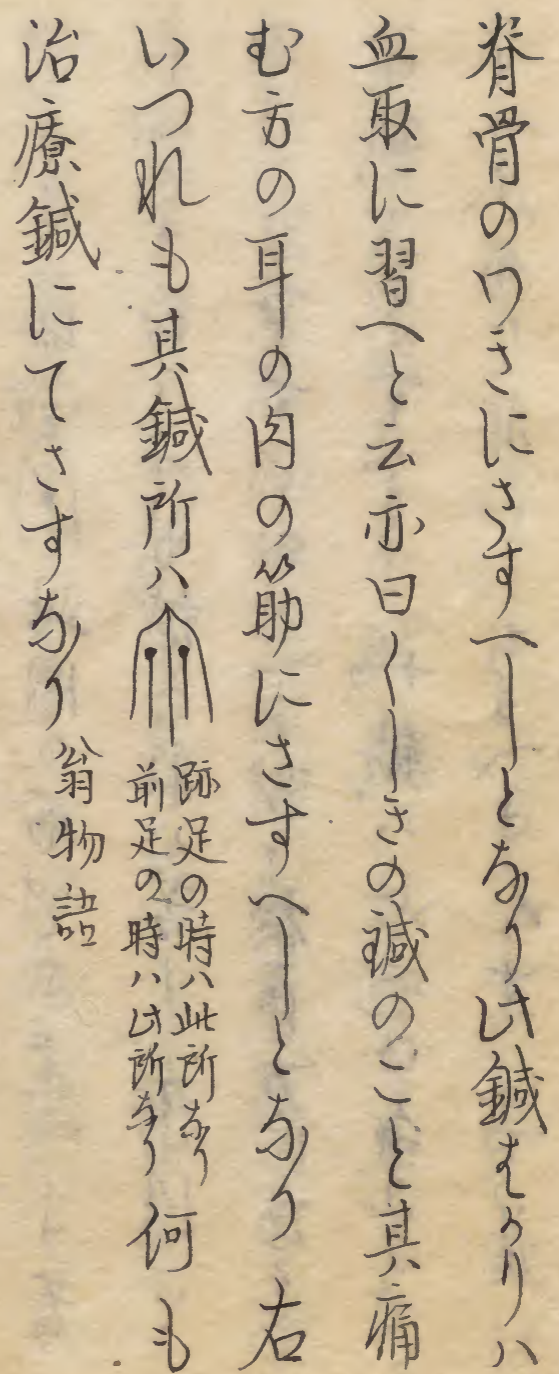 脊骨のワきにさすへしとなり此鍼はかりハ
血取に習へと云亦曰くしきの鍼のごと其痛
む方の耳の肉の筋にさすへしとなり右
いつれも其鍼所ハ
跡足の時ハ此所なり
前足の時ハ此所なり
何も
治療鍼にてさすなり
翁物語